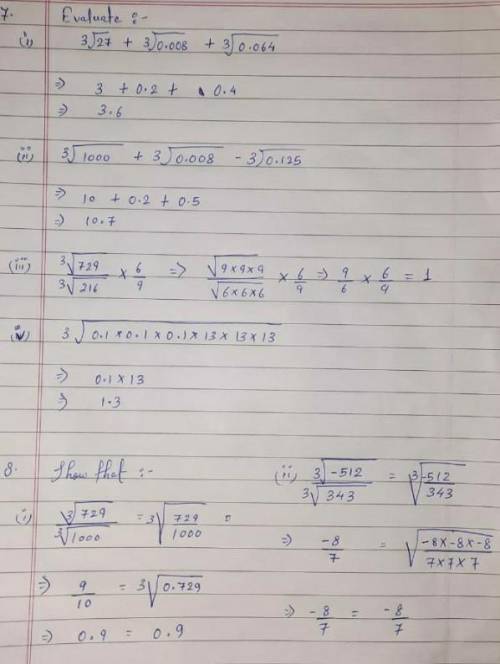 7. Evaluate :-
(i) 3√27 + 3√0.008 + 3√0.064
⇒ 3 + 0.2 + 0.4
⇒ 3.6
(ii) 3√1000 + 3√0.008 - 3√0.125
⇒ 10 + 0.2 + 0.5
⇒ 10.7
(iii) 3√729 / 3√216 × 6/9 ⇒ √9×9×9 / √6×6×6 × 6/9 ⇒ 9/6 × 6/9 = 1
(iv) 3√0.1×0.1×0.1×13×13×13
⇒ 0.1×13
⇒ 1.3
8. Show that :-
(i) 3√729 / 3√1000 = 3√729/1000
⇒ 9/10 = 3√0.729
⇒ 0.9 = 0.9
(ii) 3√-512 / 3√343 = 3√-512/343
⇒ -8/7 = √-8×-8×-8 / 7×7×7
⇒ -8/7 = -8/7